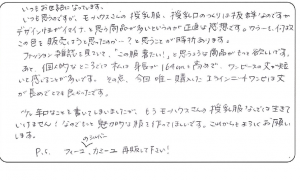 いつもお世話になってます。
いつも思うのですが、モーハウスさんの授乳服、授乳口のつくりは抜群なのですが
デザインはまだイマイチ、と思う商品が多いというのが正直な感想です。カラーも、イコス
この色を販売しようと思ったのか…？と思うことが時々あります。
ファッション雑誌を見ていて、"この服着たい!"と思うような商品がもっと欲しいです。
あと個人的なところでは私は身長が164cmと高めで、ワンピースの丈が短い
と感じることが多いです。その点、今回唯一購入したエクイニーナワンピは丈
が長めでとても良かったです。
少し辛口なことを書いてしまいましたが、もうモーハウスさんの授乳服なしには生きて
いけません! なのでもっと魅力的な服を作ってほしいです。これからもよろしくお願い
します。
のシルバー
P.S. フィーユ、カミーユ 再販して下さい!